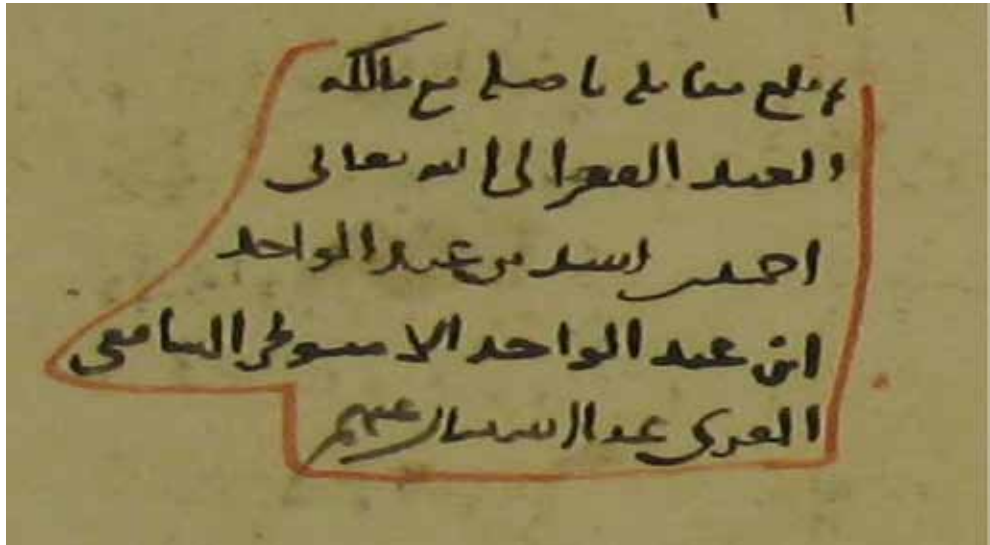 بلغ مقابلة باصله مع مالكه
العبد الفقير الى الله تعالى
احمد بن اسد بن عبد الواحد
ابن عبد الواحد الاميوطي الشافعي
المقرى عفا الله عنهم